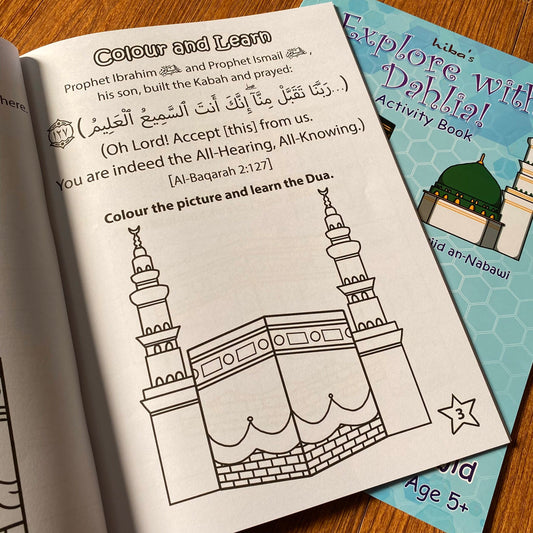 here.
Colour and Learn
Prophet Ibrahim ﷺ and Prophet Ismail ﷺ,
his son, built the Kabah and prayed:
(...رَبَّنَا تَقَبَّلْ مِنَّآ ۖ إِنَّكَ أَنتَ ٱلسَّمِيعُ ٱلْعَلِيمُ) ١٢٧
(Oh Lord! Accept [this] from us.
You are indeed the All-Hearing, All-Knowing.)
[Al-Baqarah 2:127]
Colour the picture and learn the Dua.
3
hiba's
Explore with
Dahlia!
Activity Book
an-Nabawi
Age 5+